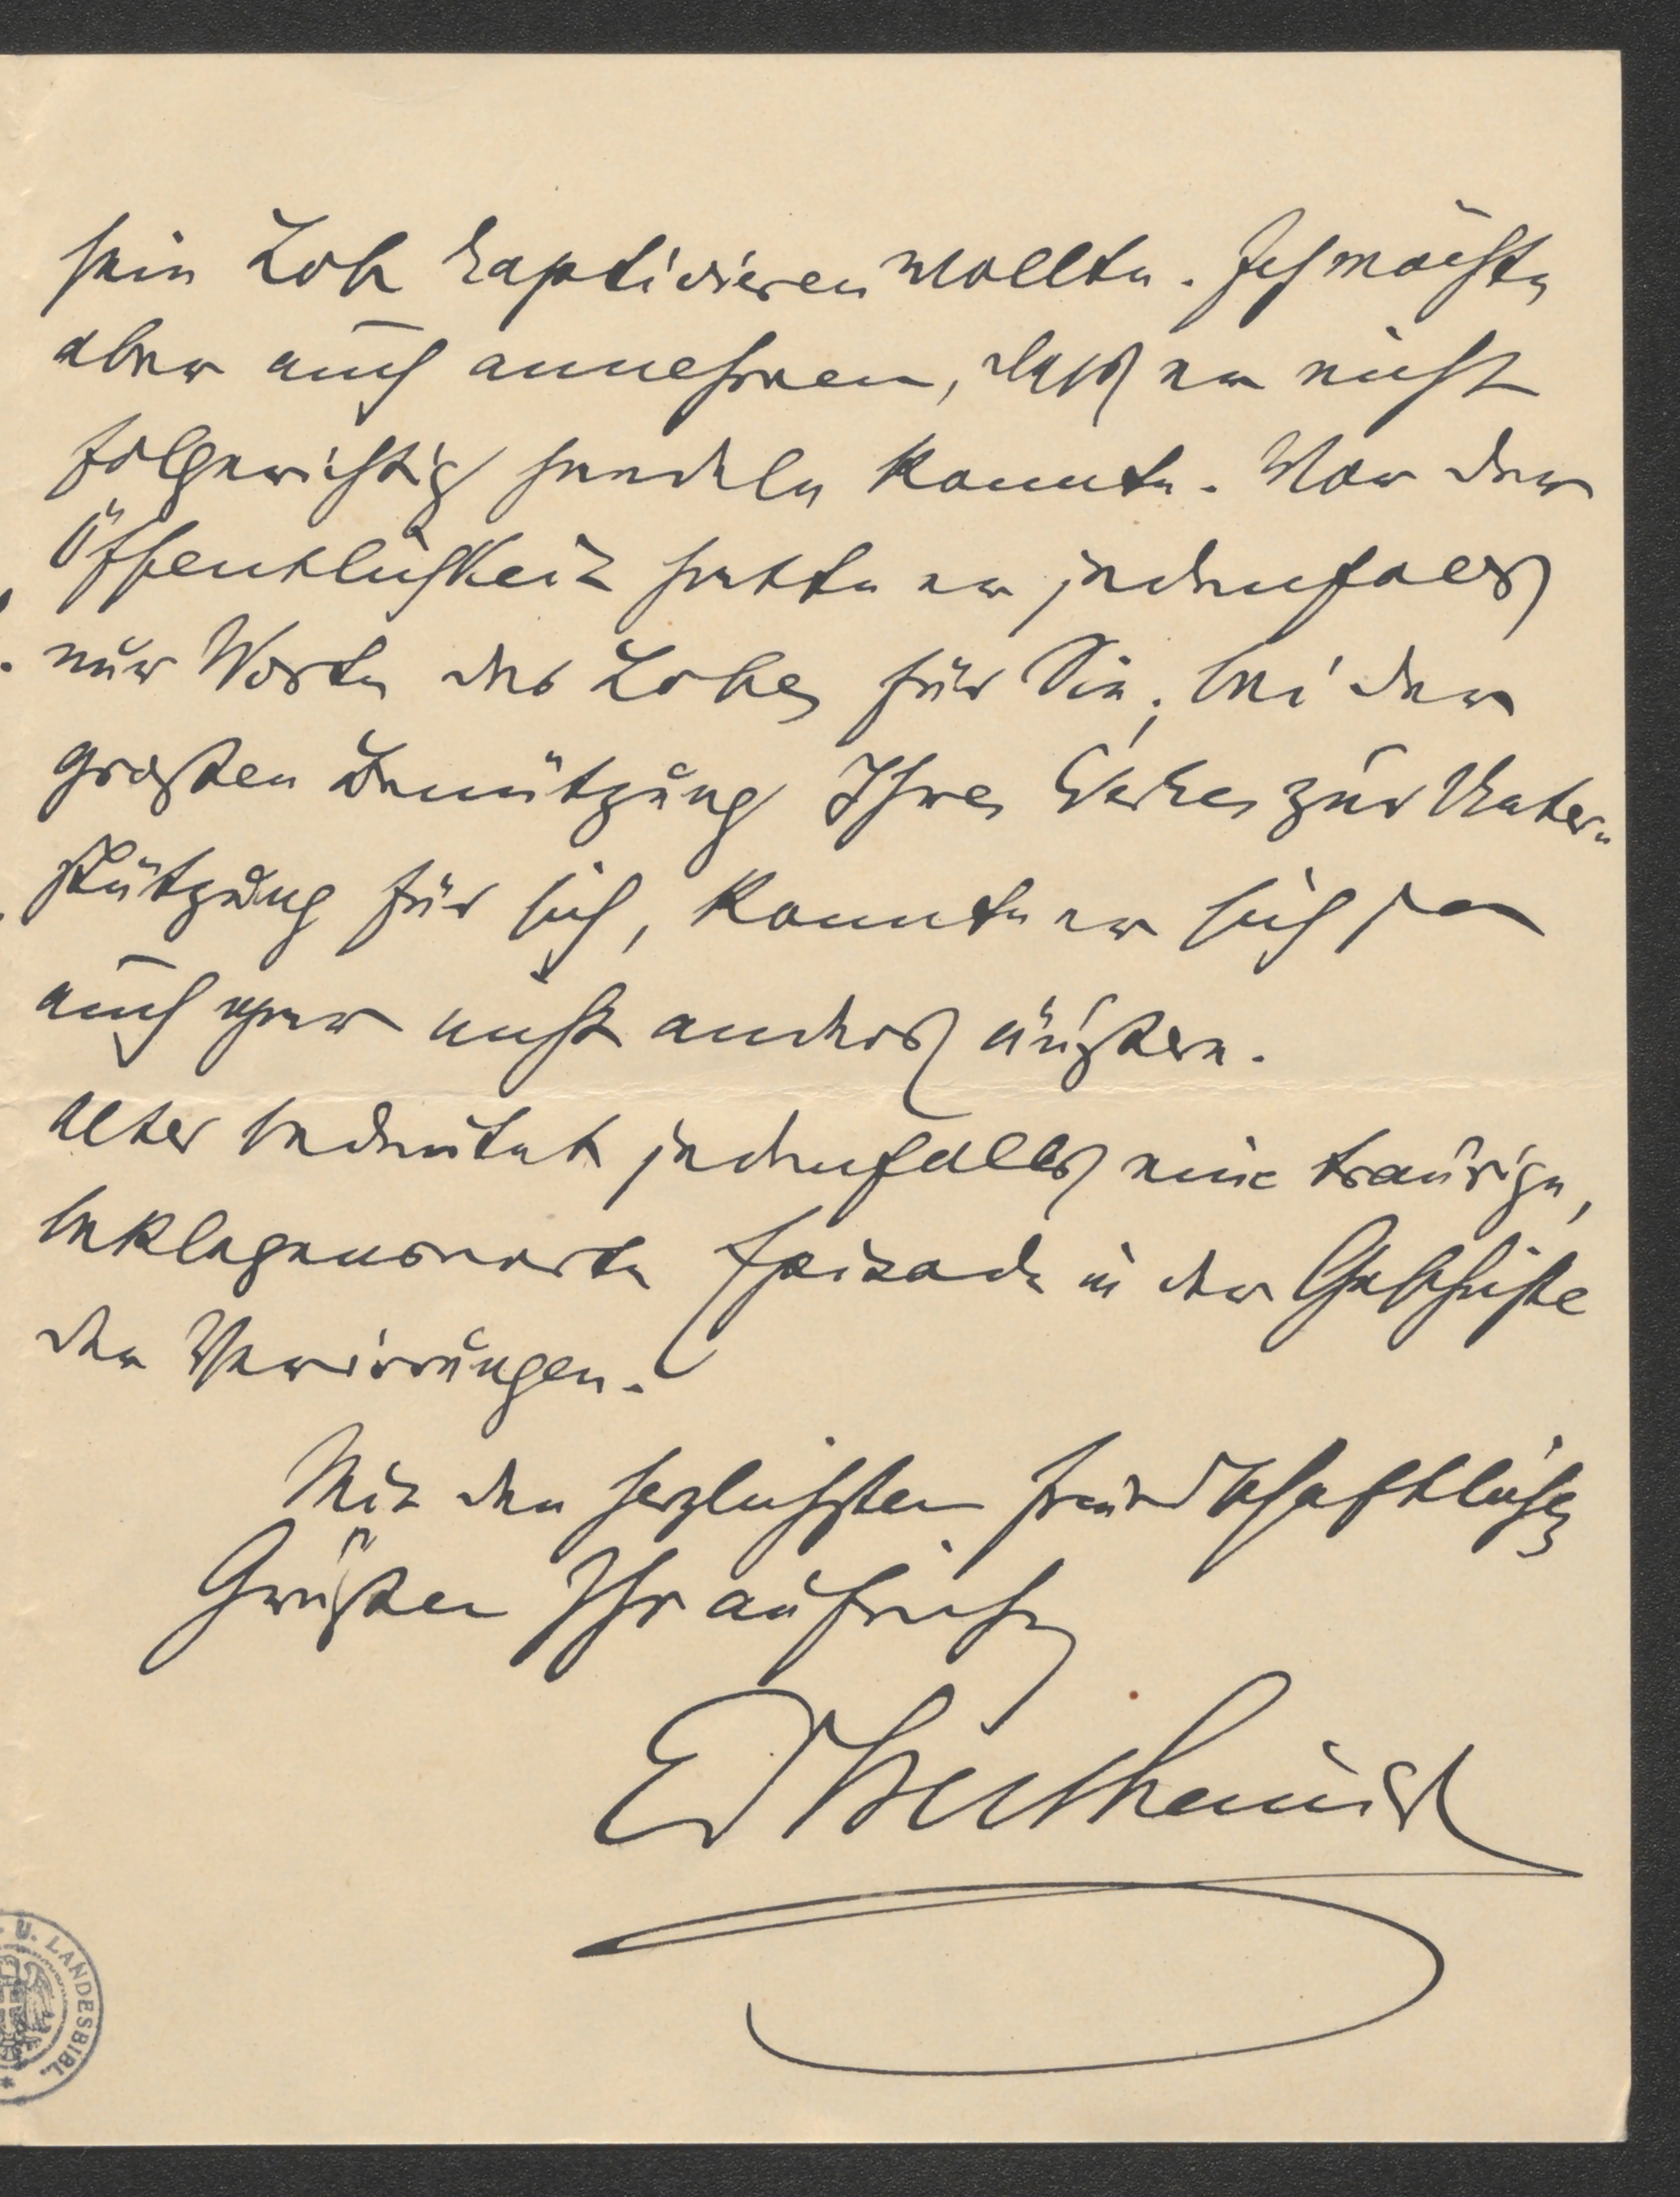 sein Lob kaptivieren wollte. Ich möchte
aber auch annehmen, dass er nicht
folgerichtig handeln konnte. Vor der
Öffentlichkeit hatte er jedenfalls
nur Worte des Lobes für Sie; bei der
großen Benützung Ihres Werkes zur Unter-
stützung für sich, konnte er sich ja
auch gar nicht anders äußern.
Alter bedeutet jedenfalls eine traurige,
beklagenswerte Episode in der Geschichte
der Verirrungen.
Mit den herzlichsten freundschaftlichen
Grüßen Ihr aufricht
U. LANDESBIBL.